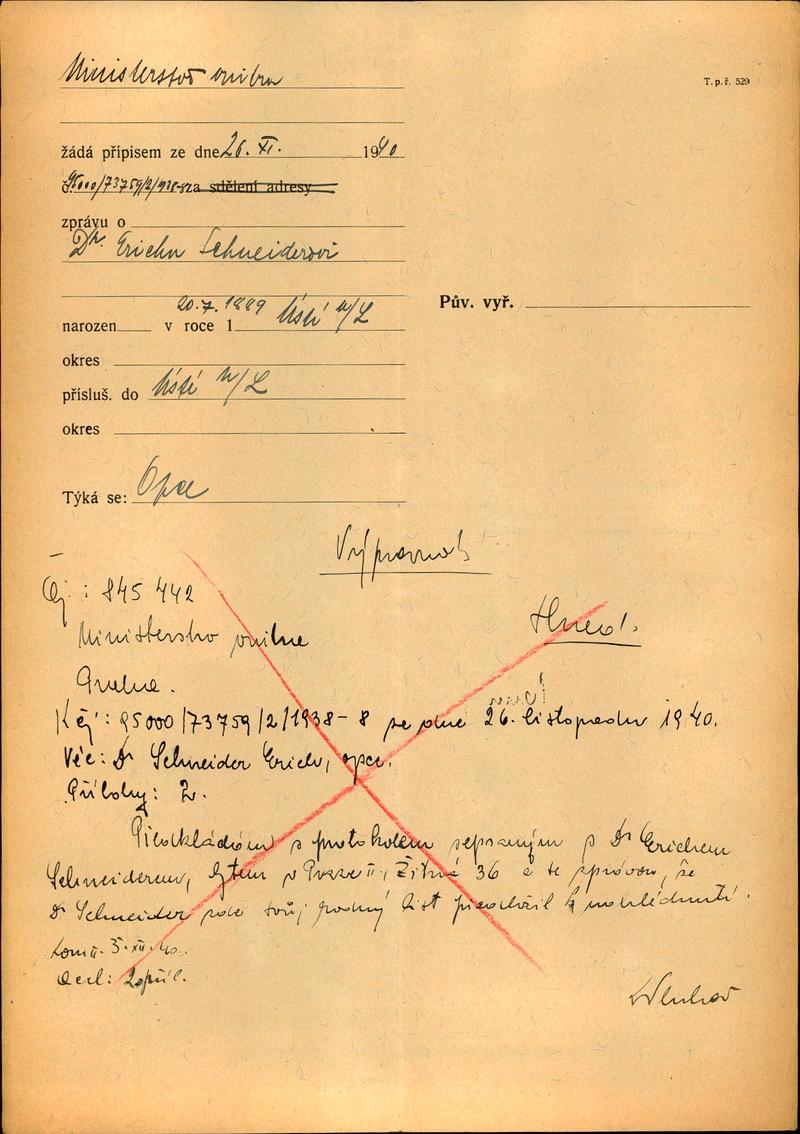 Ministerstvo vnitra
T. p. ř. 529
žádá přípisem ze dne 26. XI. 1940
č. 95000/73759/2/938-8 za sdělení adresy
zprávu o
Dr. Erichu Schneiderovi
20.7.1889
narozen v roce 1 Ústí n/L
Pův. vyř.
okres
přísluš. do Ústí n/L
okres
Týká se: Opce
Výpravna
Čj: 845 442
Ministerstvo vnitra
Hned!
Praha.
K čj: 95000/73759/2/1938-8 ze dne 26. listopadu 1940.
Věc: Dr Schneider Erich, opce.
Přílohy: 2.
Předkládám s protokolem sepsaným s Dr Erichem
Schneiderem, bytem v Praze II, Žitná 36 a se zprávou, že
Dr Schneider zde svůj rodný list předložil k nahlédnutí.
5. XII. 40.
2 příl.